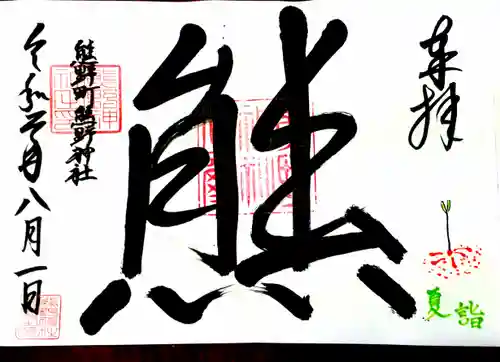 奉拝
夏詣
熊
熊野町熊野神社
令和 年八月一日